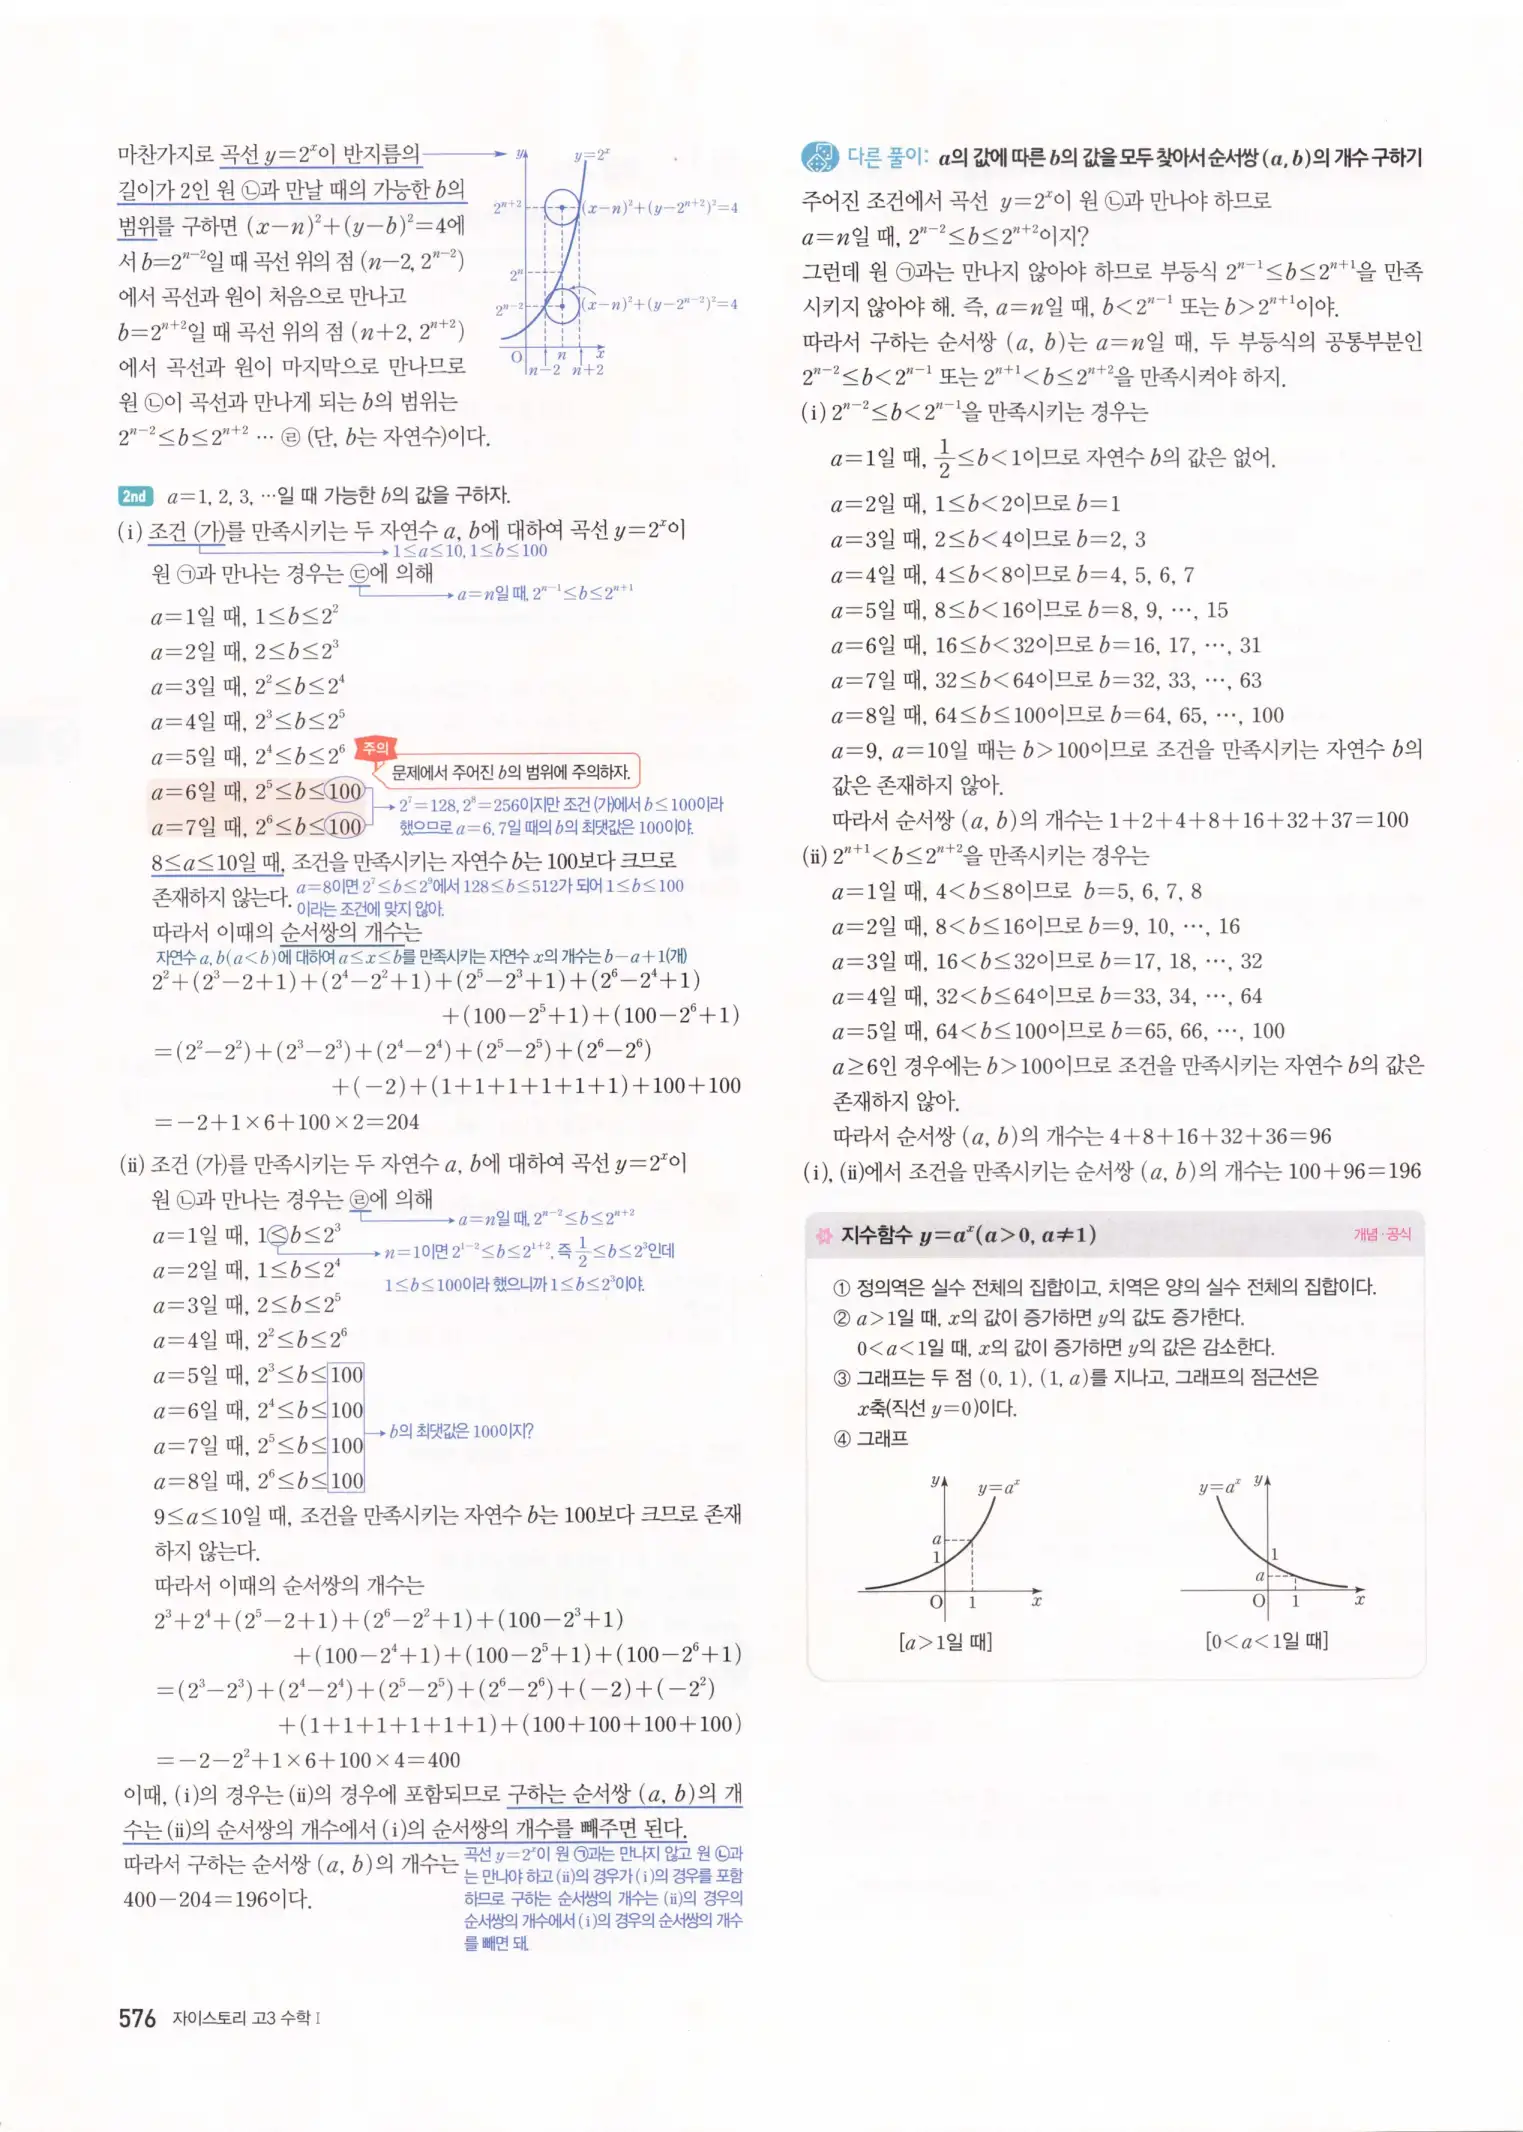 마찬가지로 곡선 y=2ˣ이 반지름의
길이가 2인 원 ㉡과 만날 때의 가능한 b의
범위를 구하면 (x−n)²+(y−b)²=4에
서 b=2ⁿ⁻²일 때 곡선 위의 점 (n−2, 2ⁿ⁻²)
에서 곡선과 원이 처음으로 만나고
b=2ⁿ⁺²일 때 곡선 위의 점 (n+2, 2ⁿ⁺²)
에서 곡선과 원이 마지막으로 만나므로
원 ㉡이 곡선과 만나게 되는 b의 범위는
2ⁿ⁻²≤b≤2ⁿ⁺² … ㉣ (단, b는 자연수)이다.
y
y=2ˣ
2ⁿ⁺²
(x−n)²+(y−2ⁿ⁺²)²=4
2ⁿ
2ⁿ⁻²
(x−n)²+(y−2ⁿ⁻²)²=4
O
n
x
n−2 n+2
2nd a=1, 2, 3, …일 때 가능한 b의 값을 구하자.
(i) 조건 (가)를 만족시키는 두 자연수 a, b에 대하여 곡선 y=2ˣ이
1≤a≤10, 1≤b≤100
원 ㉠과 만나는 경우는 ㉢에 의해
a=n일 때, 2ⁿ⁻¹≤b≤2ⁿ⁺¹
a=1일 때, 1≤b≤2²
a=2일 때, 2≤b≤2³
a=3일 때, 2²≤b≤2⁴
a=4일 때, 2³≤b≤2⁵
a=5일 때, 2⁴≤b≤2⁶
주의
문제에서 주어진 b의 범위에 주의하자.
a=6일 때, 2⁵≤b≤100
a=7일 때, 2⁶≤b≤100
2⁷=128, 2⁸=256이지만 조건 (가)에서 b≤100이라
했으므로 a=6, 7일 때의 b의 최댓값은 100이야.
8≤a≤10일 때, 조건을 만족시키는 자연수 b는 100보다 크므로
존재하지 않는다.
a=8이면 2⁷≤b≤2⁹에서 128≤b≤512가 되어 1≤b≤100
이라는 조건에 맞지 않아.
따라서 이때의 순서쌍의 개수는
자연수 a, b(a<b)에 대하여 a≤x≤b를 만족시키는 자연수 x의 개수는 b−a+1(개)
2²+(2³−2+1)+(2⁴−2²+1)+(2⁵−2³+1)+(2⁶−2⁴+1)
+(100−2⁵+1)+(100−2⁶+1)
=(2²−2²)+(2³−2³)+(2⁴−2⁴)+(2⁵−2⁵)+(2⁶−2⁶)
+(−2)+(1+1+1+1+1+1)+100+100
=−2+1×6+100×2=204
(ii) 조건 (가)를 만족시키는 두 자연수 a, b에 대하여 곡선 y=2ˣ이
원 ㉡과 만나는 경우는 ㉣에 의해
a=n일 때, 2ⁿ⁻²≤b≤2ⁿ⁺²
a=1일 때, 1≤b≤2³
n=1이면 2¹⁻²≤b≤2¹⁺², 즉 1/2≤b≤2³인데
1≤b≤100이라 했으니까 1≤b≤2³이야.
a=2일 때, 1≤b≤2⁴
a=3일 때, 2≤b≤2⁵
a=4일 때, 2²≤b≤2⁶
a=5일 때, 2³≤b≤100
a=6일 때, 2⁴≤b≤100
a=7일 때, 2⁵≤b≤100
a=8일 때, 2⁶≤b≤100
b의 최댓값은 100이지?
9≤a≤10일 때, 조건을 만족시키는 자연수 b는 100보다 크므로 존재
하지 않는다.
따라서 이때의 순서쌍의 개수는
2³+2⁴+(2⁵−2+1)+(2⁶−2²+1)+(100−2³+1)
+(100−2⁴+1)+(100−2⁵+1)+(100−2⁶+1)
=(2³−2³)+(2⁴−2⁴)+(2⁵−2⁵)+(2⁶−2⁶)+(−2)+(−2²)
+(1+1+1+1+1+1)+(100+100+100+100)
=−2−2²+1×6+100×4=400
이때, (i)의 경우는 (ii)의 경우에 포함되므로 구하는 순서쌍 (a, b)의 개
수는 (ii)의 순서쌍의 개수에서 (i)의 순서쌍의 개수를 빼주면 된다.
따라서 구하는 순서쌍 (a, b)의 개수는
400−204=196이다.
곡선 y=2ˣ이 원 ㉠과는 만나지 않고 원 ㉡과
는 만나야 하고 (ii)의 경우가 (i)의 경우를 포함
하므로 구하는 순서쌍의 개수는 (ii)의 경우의
순서쌍의 개수에서 (i)의 경우의 순서쌍의 개수
를 빼면 돼.
576 자이스토리 고3 수학 I
다른 풀이: a의 값에 따른 b의 값을 모두 찾아서 순서쌍 (a, b)의 개수 구하기
주어진 조건에서 곡선 y=2ˣ이 원 ㉡과 만나야 하므로
a=n일 때, 2ⁿ⁻²≤b≤2ⁿ⁺²이지?
그런데 원 ㉠과는 만나지 않아야 하므로 부등식 2ⁿ⁻¹≤b≤2ⁿ⁺¹을 만족
시키지 않아야 해. 즉, a=n일 때, b<2ⁿ⁻¹ 또는 b>2ⁿ⁺¹이야.
따라서 구하는 순서쌍 (a, b)는 a=n일 때, 두 부등식의 공통부분인
2ⁿ⁻²≤b<2ⁿ⁻¹ 또는 2ⁿ⁺¹<b≤2ⁿ⁺²을 만족시켜야 하지.
(i) 2ⁿ⁻²≤b<2ⁿ⁻¹을 만족시키는 경우는
a=1일 때, 1/2≤b<1이므로 자연수 b의 값은 없어.
a=2일 때, 1≤b<2이므로 b=1
a=3일 때, 2≤b<4이므로 b=2, 3
a=4일 때, 4≤b<8이므로 b=4, 5, 6, 7
a=5일 때, 8≤b<16이므로 b=8, 9, …, 15
a=6일 때, 16≤b<32이므로 b=16, 17, …, 31
a=7일 때, 32≤b<64이므로 b=32, 33, …, 63
a=8일 때, 64≤b≤100이므로 b=64, 65, …, 100
a=9, a=10일 때는 b>100이므로 조건을 만족시키는 자연수 b의
값은 존재하지 않아.
따라서 순서쌍 (a, b)의 개수는 1+2+4+8+16+32+37=100
(ii) 2ⁿ⁺¹<b≤2ⁿ⁺²을 만족시키는 경우는
a=1일 때, 4<b≤8이므로 b=5, 6, 7, 8
a=2일 때, 8<b≤16이므로 b=9, 10, …, 16
a=3일 때, 16<b≤32이므로 b=17, 18, …, 32
a=4일 때, 32<b≤64이므로 b=33, 34, …, 64
a=5일 때, 64<b≤100이므로 b=65, 66, …, 100
a≥6인 경우에는 b>100이므로 조건을 만족시키는 자연수 b의 값은
존재하지 않아.
따라서 순서쌍 (a, b)의 개수는 4+8+16+32+36=96
(i), (ii)에서 조건을 만족시키는 순서쌍 (a, b)의 개수는 100+96=196
지수함수 y=aˣ(a>0, a≠1) 개념·공식
① 정의역은 실수 전체의 집합이고, 치역은 양의 실수 전체의 집합이다.
② a>1일 때, x의 값이 증가하면 y의 값도 증가한다.
0<a<1일 때, x의 값이 증가하면 y의 값은 감소한다.
③ 그래프는 두 점 (0, 1), (1, a)를 지나고, 그래프의 점근선은
x축(직선 y=0)이다.
④ 그래프
y
y=aˣ
a
1
O
1
x
[a>1일 때]
y=aˣ
y
1
a
O
1
x
[0<a<1일 때]